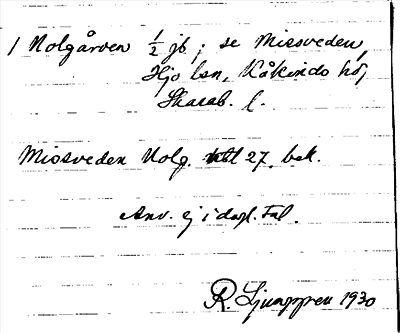 / Nolgården ½ jb; se Missveden,
Hjo lsn, Kåkinds hd,
Skarab. l.
Missveden Nolg. 27. bek.
Anv. ej i dagl. tal.
R. Ljunggren 1930